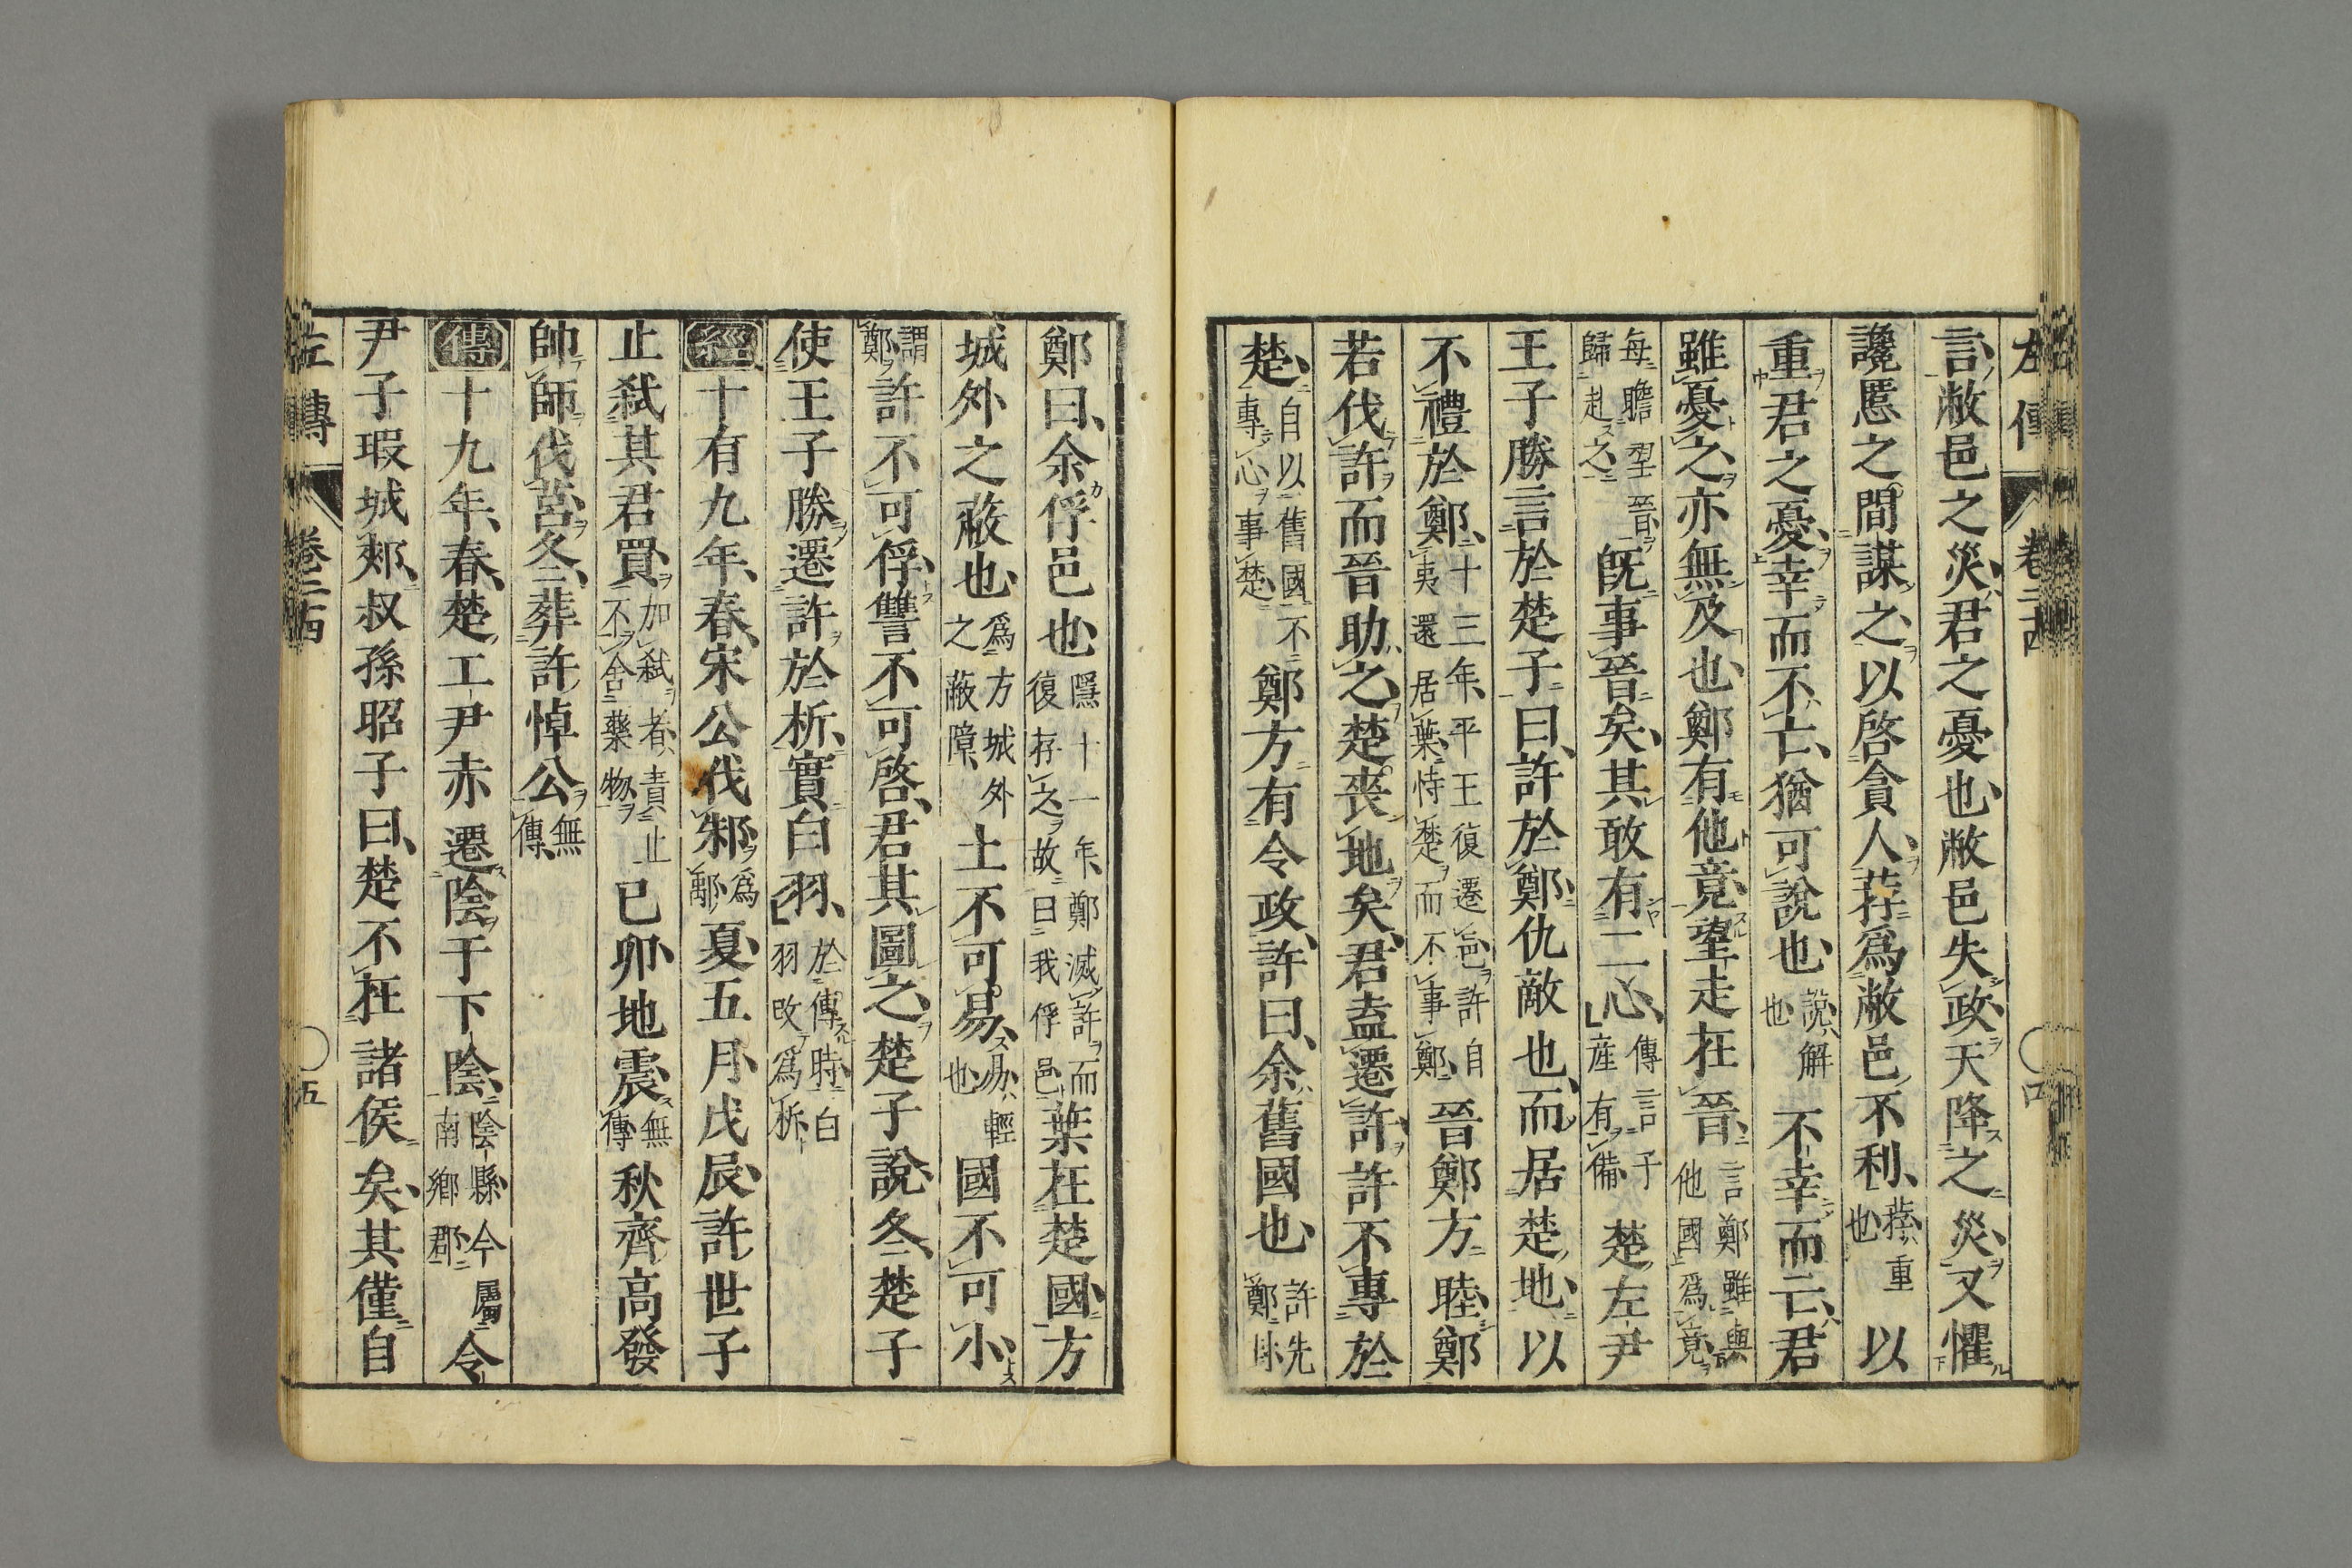 左傳 卷二十四 四
言敝邑之災君之憂也敝邑失政天降之災又懼
讒慝之間謀之以啓貪人荐爲敝邑不利荐重也以
重君之憂幸而不亡猶可說也說解也不幸而亡君
雖憂之亦無及也鄭有他竟望走在晉言鄭雖與他國爲竟
每瞻望晉歸赴之既事晉矣其敢有二心傳言子產有備楚左尹
王子勝言於楚子曰許於鄭仇敵也而居楚地以
不禮於鄭十三年平王復遷邑許自夷還居葉恃楚而不事鄭晉鄭方睦鄭
若伐許而晉助之楚喪地矣君盍遷許許不專於
楚自以舊國不專心事楚鄭方有令政許曰余舊國也許先鄭封
鄭曰余俘邑也隱十一年鄭滅許而復存之故曰我俘邑葉在楚國方
城外之蔽也爲方城外之蔽障土不可易易輕也國不可小
謂鄭許不可俘讎不可啓君其圖之楚子說冬楚子
使王子勝遷許於析實白羽於傳時白羽改爲析
經十有九年春宋公伐邾爲鄅夏五月戊辰許世子
止弒其君買加弒者責止不舍藥物己卯地震無傳秋齊高發
帥師伐莒冬葬許悼公無傳
傳十九年春楚工尹赤遷陰于下陰陰縣今屬南鄉郡令
尹子瑕城郟叔孫昭子曰楚不在諸侯矣其僅自
左傳 卷二十四 五